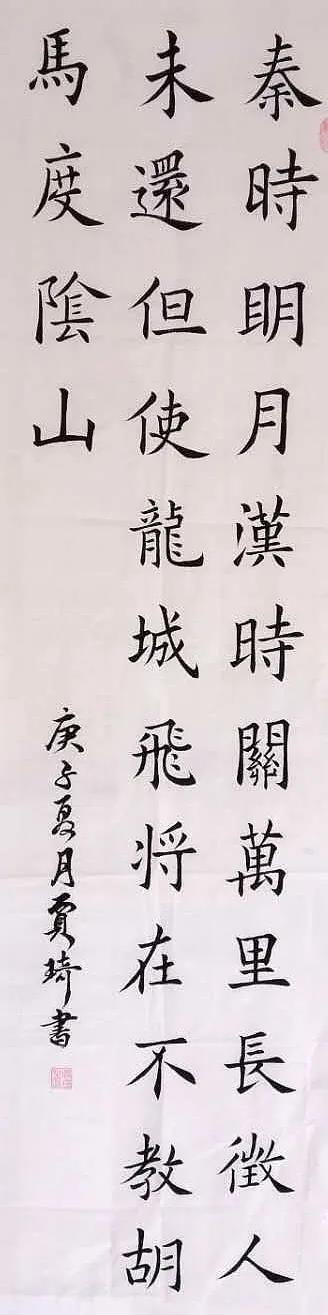 秦時明月漢時關萬里長徵人
未還但使龍城飛將在不教胡
馬度陰山
庚子夏月賈琦書